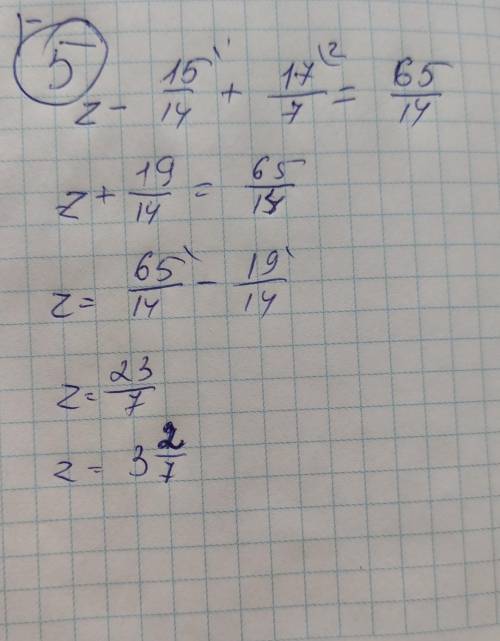 5
z - 15/14 \1 + 17/7 \2 = 65/14
z + 19/14 = 65/14
z = 65/14 \ - 19/14 \
z = 23/7
z = 3 2/7